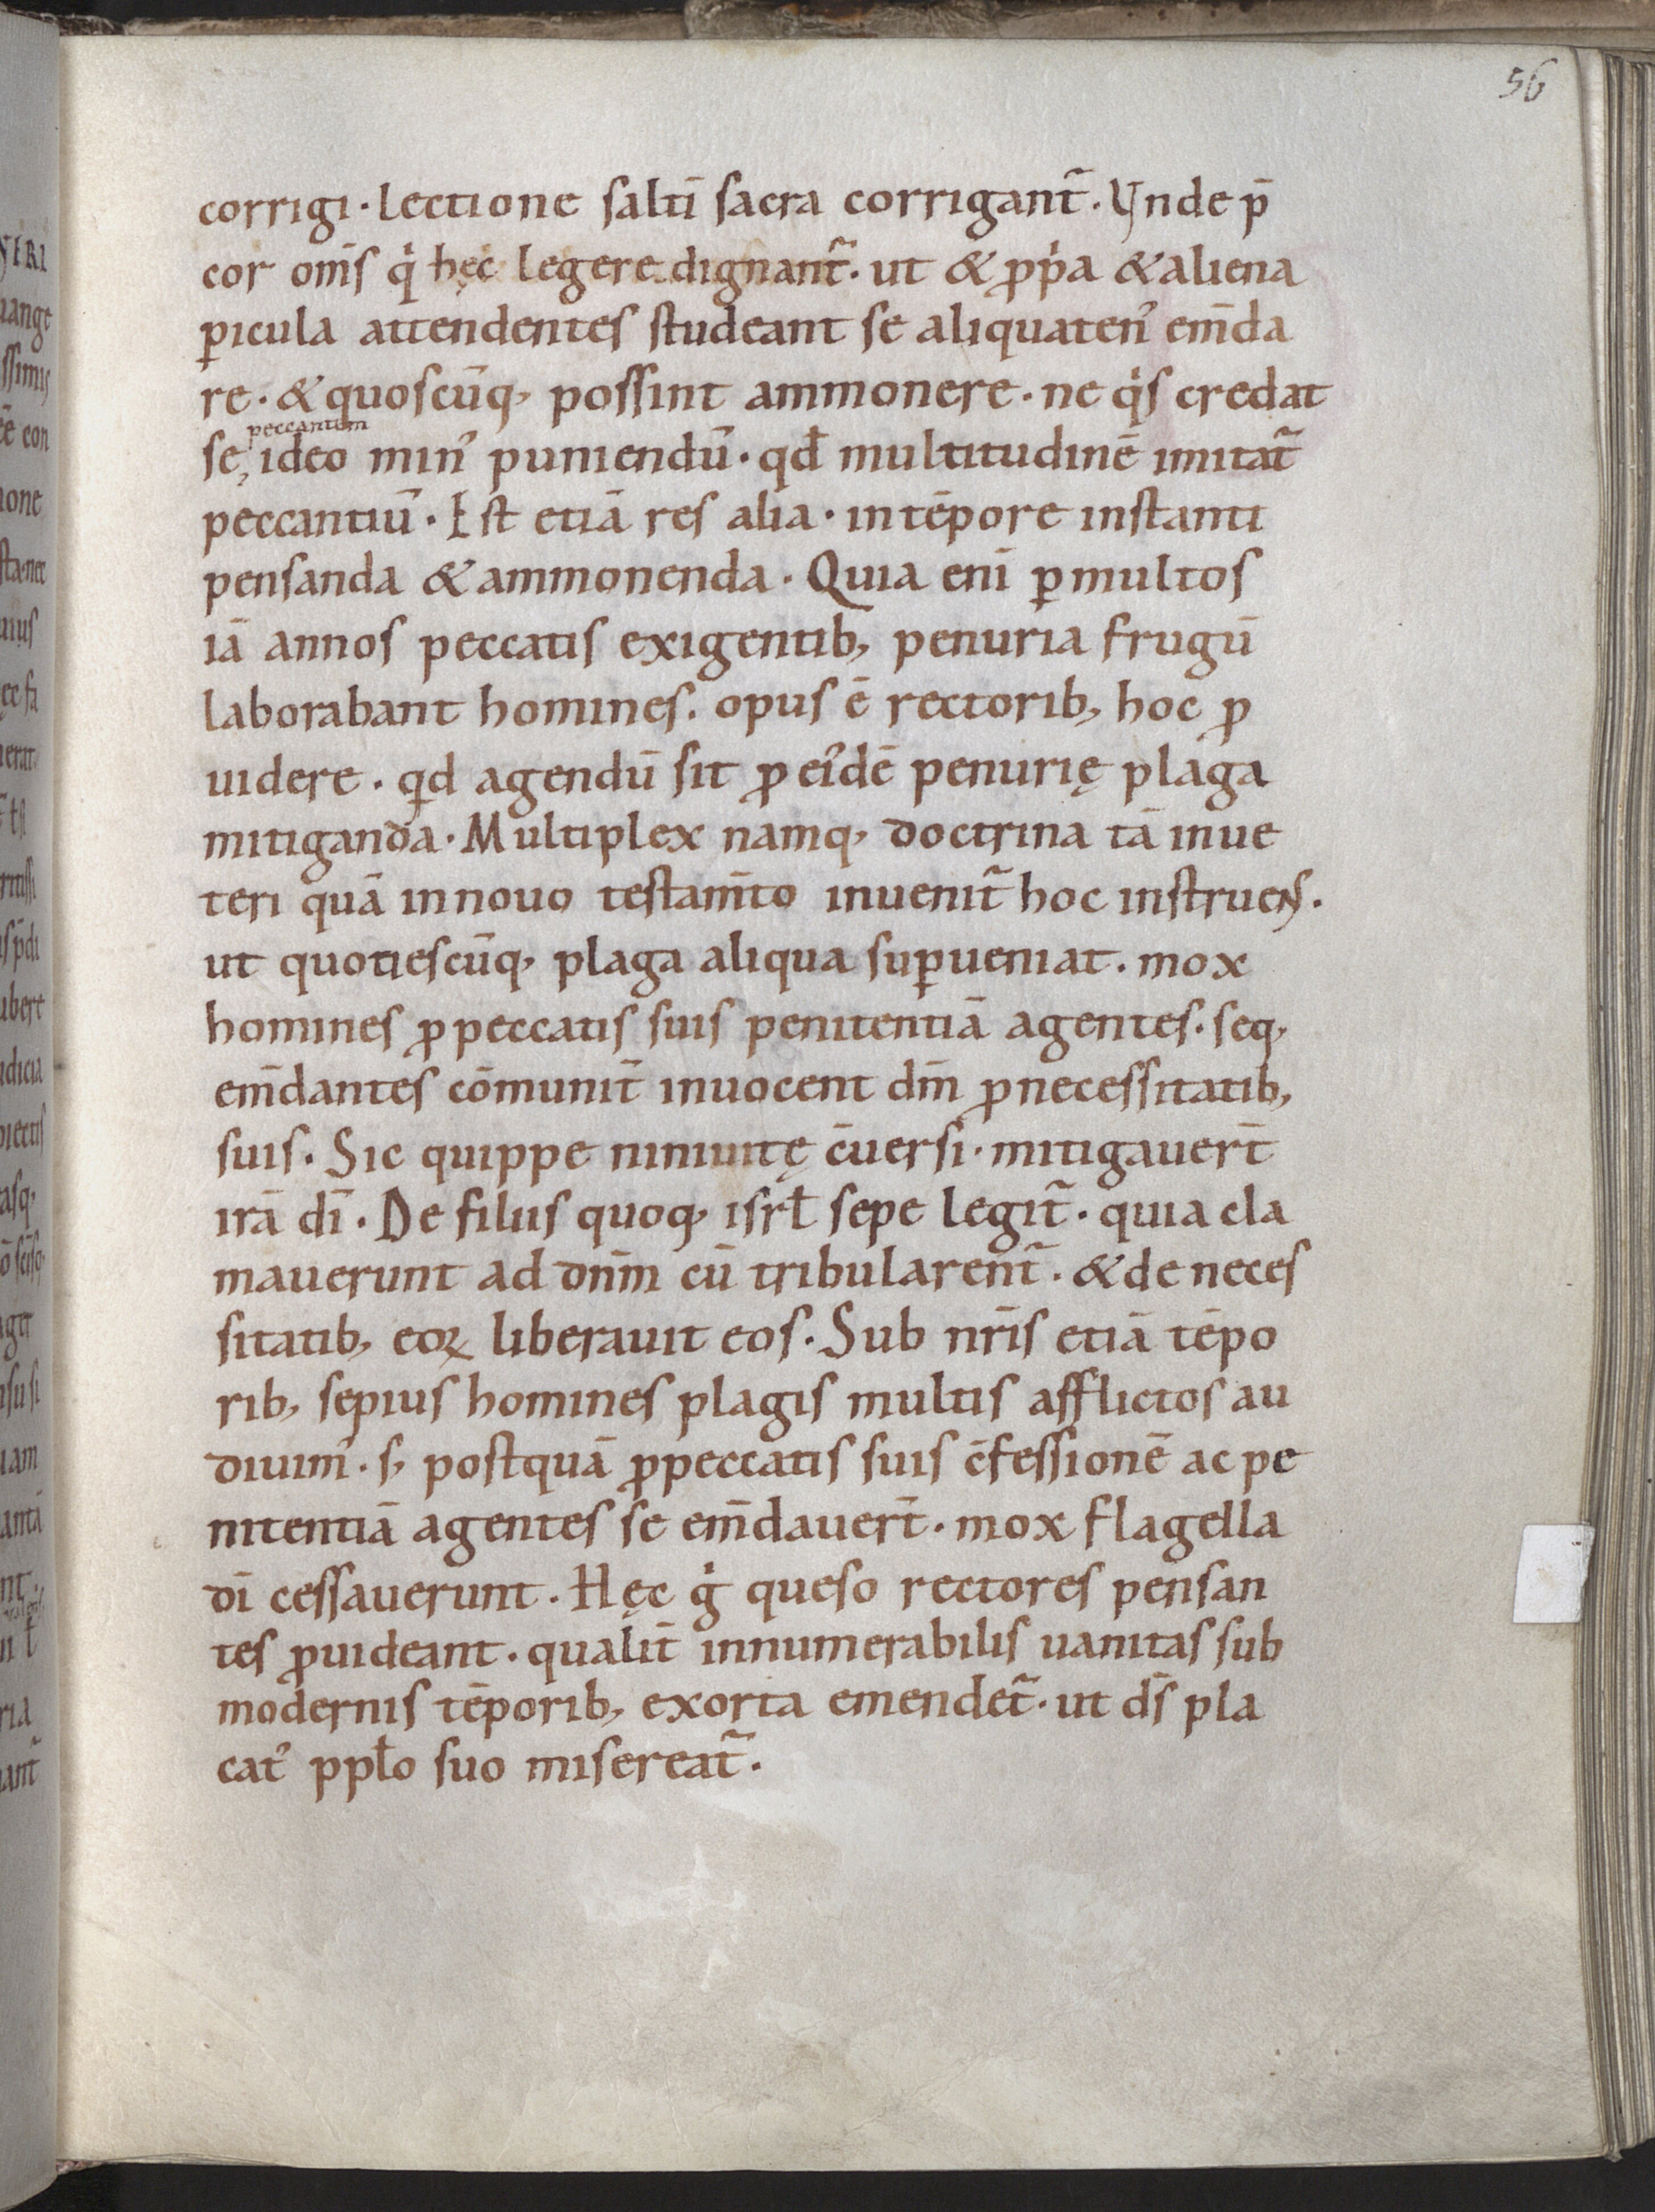 56
corrigi · lectione saltī sacra corrigant̄ . Vnde p̄
cor om̄s qͥ hęc legere dignant̄ . ut & ꝓpͥa & aliena
ꝑicula attendentes studeant se aliquatenꝰ em̄da
re · & quoscūq; possint ammonere · ne qͥs credat
peccantem
se, ideo minꝰ puniendū · qđ multitudinē imitat̄
peccantiū · Est etiā res alia · in tēpore instanti
pensanda & ammonenda · Quia enī ꝑ multos
iā annos peccatis exigentib; penuria frugū
laborabant homines . opus ē rectorib; hoc ꝓ
uidere · qd agendū sit ꝓ eiꝰdē penurię plaga
mitiganda · Multiplex namq; doctrina tā in ue
teri quā in nouo testam̄to inuenit̄ hoc instruens .
ut quotiescūq; plaga aliqua suꝑueniat . mox
homines ꝓ peccatis suis penitentiā agentes . seq;
em̄dantes cōmunit̄ inuocent dm̄ ꝓ necessitatib;
suis . Sic quippe niniuitę c̄uersi · mitigauer̄t
irā dī . De filiis quoq; isrł sepe legit̄ · quia cla
mauerunt ad dn̄m cū tribularent̄ . & de neces
sitatib; eoꝝ liberauit eos . Sub nr̄is etiā tēpo
rib; sepius homines plagis multis afflictos au
diuimꝰ . s; postquā ꝓ peccatis suis c̄fessionē ac pe
nitentiā agentes se em̄dauer̄t . mox flagella
dī cessauerunt . Hęc gͥ queso rectores pensan
tes ꝓuideant . qualit̄ innumerabilis uanitas sub
modernis tēporib; exorta emendet̄ . ut ds̄ pla
catꝰ ppło suo misereat̄ .